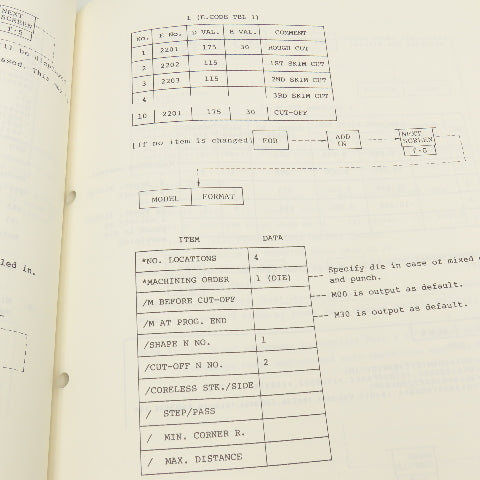 1 (E.CODE TBL 1)
No. E No. D VAL. H VAL. COMMENT
1 2201 175 30 ROUGH CUT
2 2202 115 1ST SKIM CUT
3 2203 115 2ND SKIM CUT
4 3RD SKIM CUT
10 2201 175 30 CUT-OFF
[If no item is changed] EOB ADD IN NEXT SCREEN
f·5
MODEL FORMAT
ITEM DATA
*NO. LOCATIONS 4
*MACHINING ORDER 1 (DIE) Specify die in case of mixed
and punch.
/M BEFORE CUT-OFF M00 is output as default.
/M AT PROG. END M30 is output as default.
/SHAPE N NO. 1
/CUT-OFF N NO. 2
/CORELESS STK./SIDE
/ STEP/PASS
/ MIN. CORNER R.
/ MAX. DISTANCE
NEXT
SCREEN
f·5
ll be
This
led in.